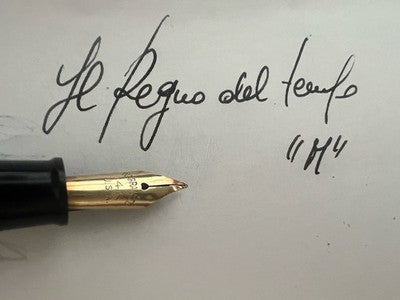 Il Regno del tempo
"M"